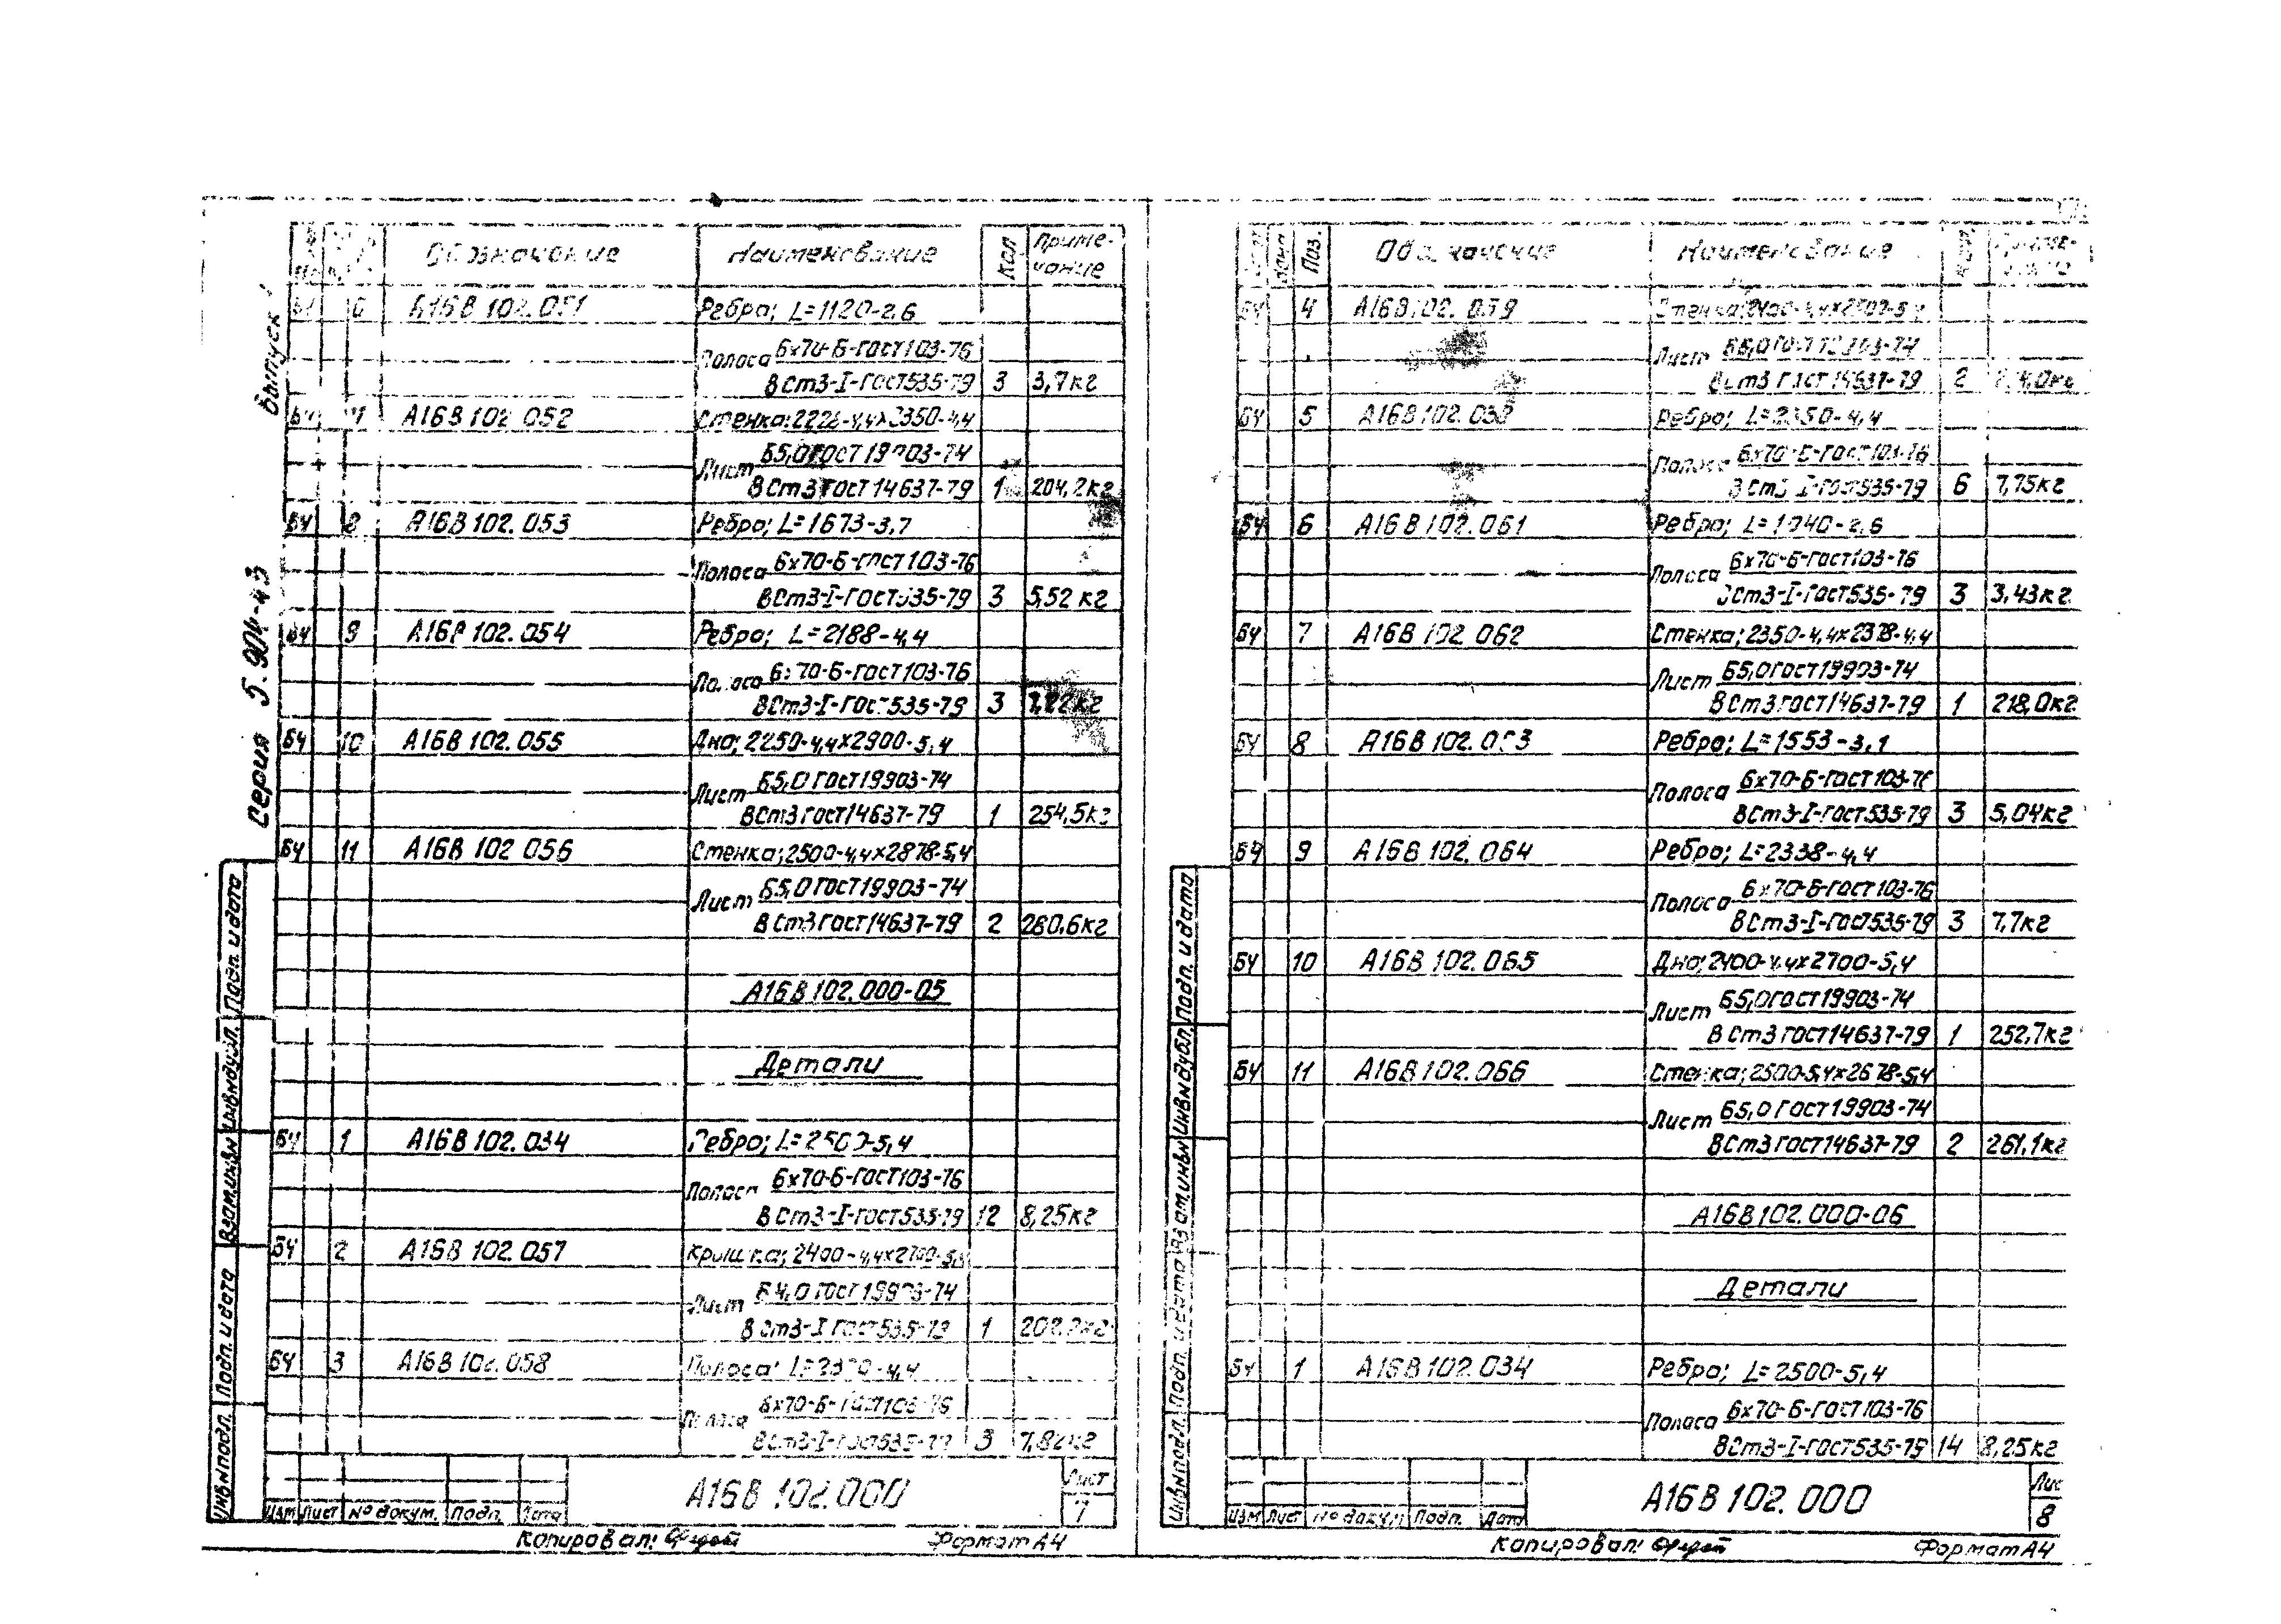 Серия 5.904-43
Выпуск
Обозначение Наименование Кол Приме-
чание
6 А16В 102.051 Ребро; L=1120-2,6
Полоса 6х70-Б-ГОСТ103-76
ВСт3-I-ГОСТ535-79 3 3,7кг
БЧ А16В 102 052 Стенка;2228-4,4х2350-4,4
Лист Б5,0 ГОСТ 19903-74
ВСт3 ГОСТ 14637-79 1 204,2кг
БЧ 8 А16В 102.053 Ребро; L=1673-3,7
Полоса 6х70-Б-ГОСТ103-76
ВСт3-I-ГОСТ535-79 3 5,52 кг
БЧ 9 А16В 102.054 Ребро; L=2188-4,4
Полоса 6х70-Б-ГОСТ103-76
ВСт3-I-ГОСТ535-79 3
БЧ 10 А16В 102.055 Дно; 2250-4,4х2900-5,4
Лист Б5,0 ГОСТ19903-74
ВСт3 ГОСТ14637-79 1 254,5кг
БЧ 11 А16В 102 056 Стенка;2500-4,4х2878-5,4
Лист Б5,0 ГОСТ19903-74
ВСт3 ГОСТ14637-79 2 280,6кг
А16В 102.000-05
Детали
БЧ 1 А16В 102.034 Ребро; L=2500-5,4
Полоса 6х70-Б-ГОСТ103-76
ВСт3-I-ГОСТ535-79 12 8,25кг
БЧ 2 А16В 102.057 Крышка; 2400-4,4х2700-5,4
Лист Б4,0 ГОСТ19903-74
ВСт3-I ГОСТ535-79 1
БЧ 3 А16В 102.058 Полоса; -4,4
Полоса 6х70-Б-ГОСТ103-76
ВСт3-I-ГОСТ535-79 3
Инв.№подл. Подп. и дата Взам.инв.№ Инв.№дубл. Подп. и дата
Изм Лист № докум. Подп. Дата
А16В 102.000
Лист
7
Копировал:
Формат А4
Поз. Обозначение Наименование
БЧ 4 А16В 102.059 Стенка;2400-4,4х2500-5,4
Лист Б5,0 ГОСТ 19903-74
ВСт3 ГОСТ 14637-79 2
БЧ 5 А16В 102.038 Ребро; L=2350-4,4
Полоса 6х70-Б-ГОСТ103-76
ВСт3-I-ГОСТ535-79 6 7,75кг
БЧ 6 А16В 102.061 Ребро; L=1040-2,6
Полоса 6х70-Б-ГОСТ103-76
ВСт3-I-ГОСТ535-79 3 3,43кг
БЧ 7 А16В 102 062 Стенка; 2350-4,4х2378-4,4
Лист Б5,0 ГОСТ19903-74
ВСт3 ГОСТ14637-79 1 218,0кг
БЧ 8 А16В 102.063 Ребро; L=1553-3,1
Полоса 6х70-Б-ГОСТ103-76
ВСт3-I-ГОСТ535-79 3 5,04кг
БЧ 9 А16В 102. 064 Ребро; L=2338-4,4
Полоса 6х70-Б-ГОСТ103-76
ВСт3-I-ГОСТ535-79 3 7,7кг
БЧ 10 А16В 102.065 Дно;2400-4,4х2700-5,4
Лист Б5,0 ГОСТ19903-74
ВСт3 ГОСТ14637-79 1 252,7кг
БЧ 11 А16В 102.066 Стенка;2500-5,4х2678-5,4
Лист Б5,0 ГОСТ19903-74
ВСт3 ГОСТ14637-79 2 261,1кг
А16В102.000-06
Детали
БЧ 1 А16В 102.034 Ребро; L=2500-5,4
Полоса 6х70-Б-ГОСТ103-76
ВСт3-I-ГОСТ535-79 14 8,25кг
Инв.№подл. Подп. и дата Взам.инв.№ Инв.№дубл. Подп. и дата
Изм Лист № докум Подп. Дата
А16В 102.000
Лис
8
Копировал:
Формат А4